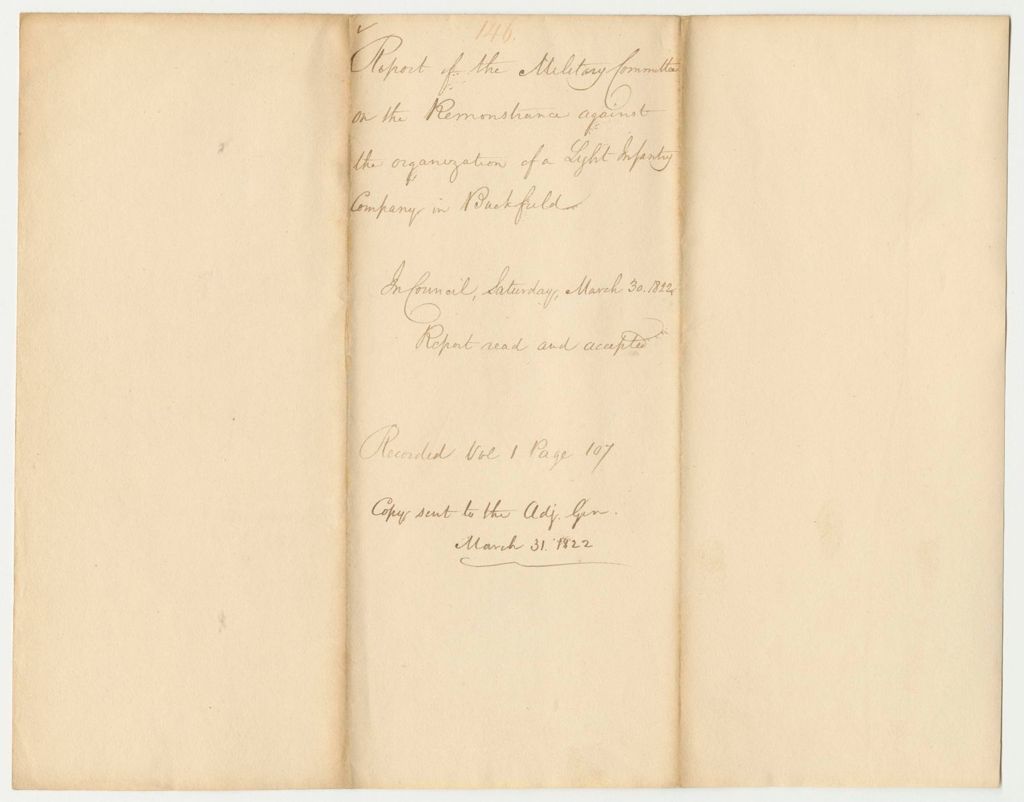 146.
Report of the Military Committee
on the Remonstrance against
the organization of a Light Infantry
Company in Buckfield
In Council, Saturday, March 30. 1822
Report read and accepted
Recorded Vol 1 Page 107
Copy sent to the Adj. Gen.
March 31. 1822